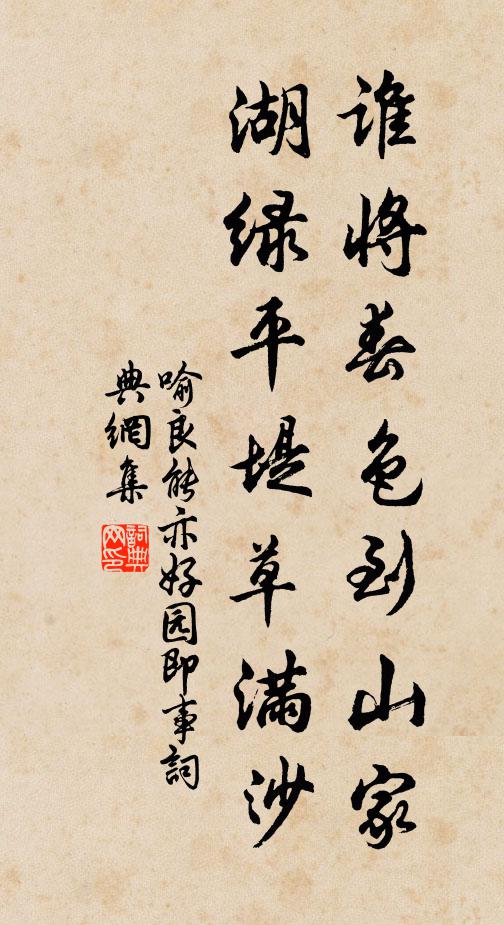 谁将春色到山家
湖绿平堤草满沙
喻良能亦好园即事詞
典網集
詞典网印